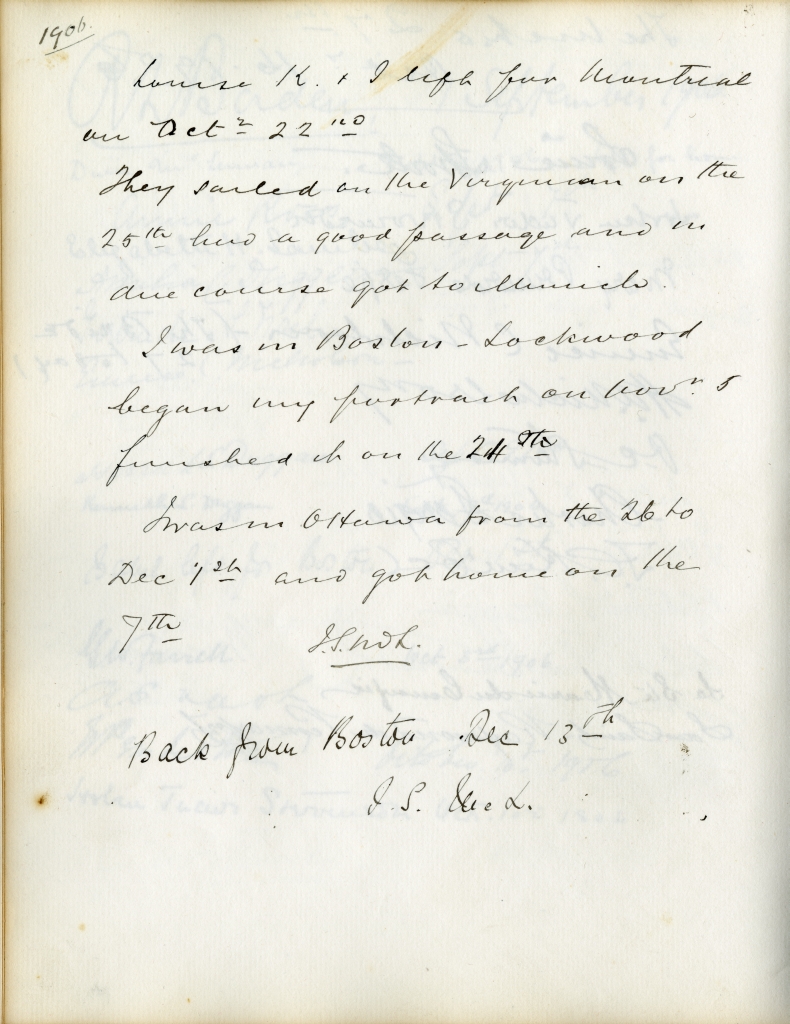 1906.
Louise K. & I left for Montreal
on Octr 22nd
They sailed on the Virginian on the
25th had a good passage and in
due course got to Munich.
I was in Boston - Lockwood
began my portrait on Novr 5
finished it on the 24th
I was in Ottawa from the 26 to
Dec 1st and got home on the
7th
J.S. McL.
Back from Boston Dec 13th
J. S. McL.